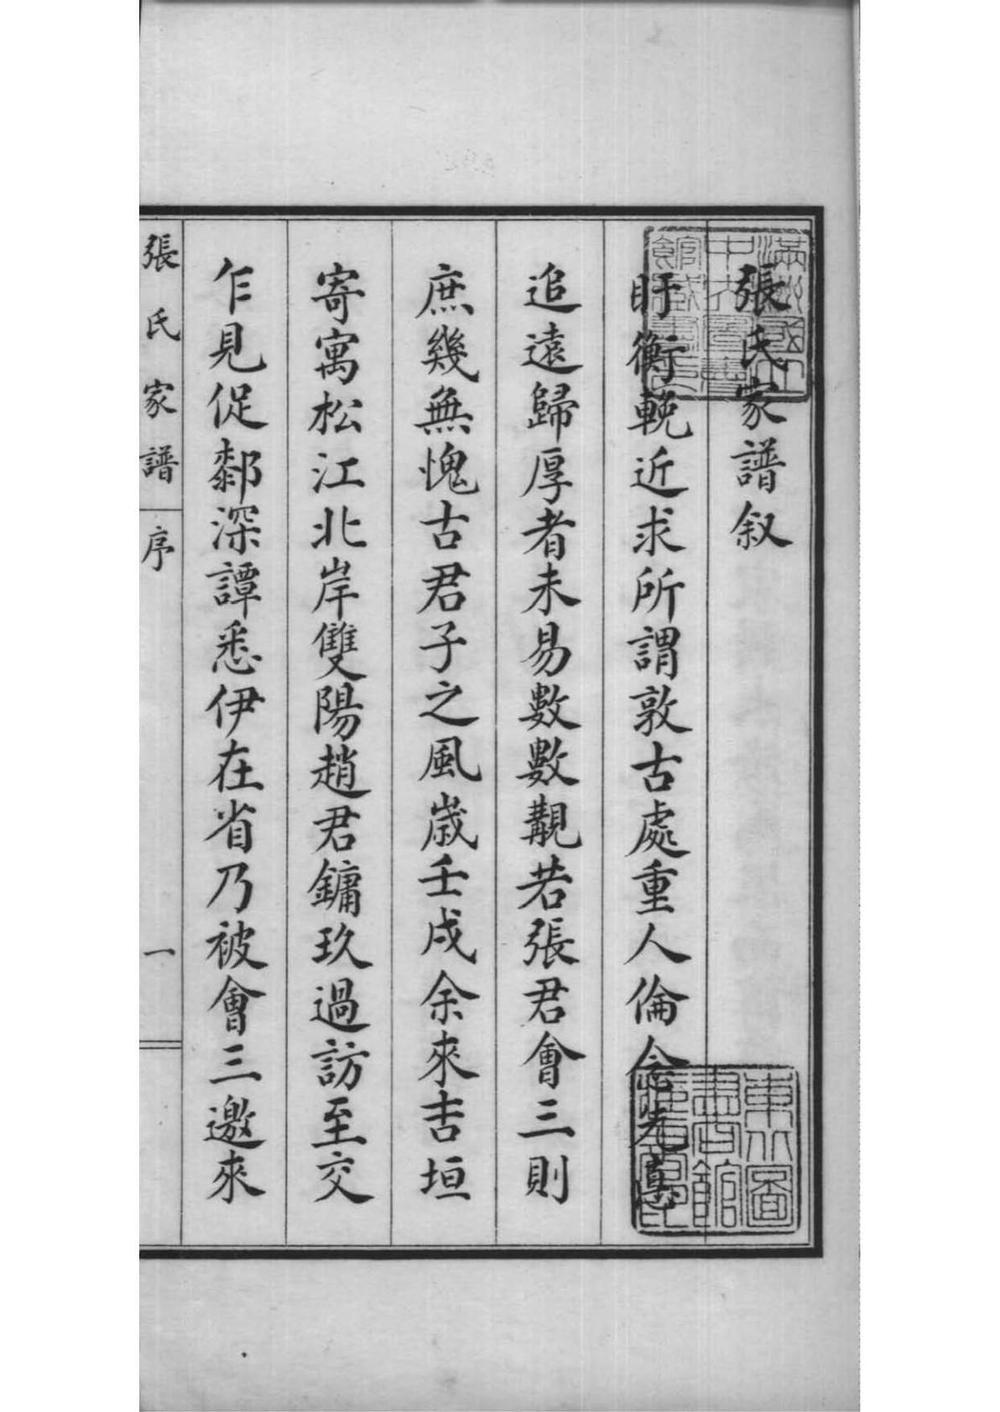 張氏家譜叙
盱衡輓近求所謂敦古處重人倫念先惪
追遠歸厚者未易數數覯若張君會三則
庶幾無愧古君子之風歲壬戌余來吉垣
寄寓松江北岸雙陽趙君鏞玖過訪至交
乍見促鄰深譚悉伊在省乃被會三邀來
張氏家譜
序
一
東北圖
書館